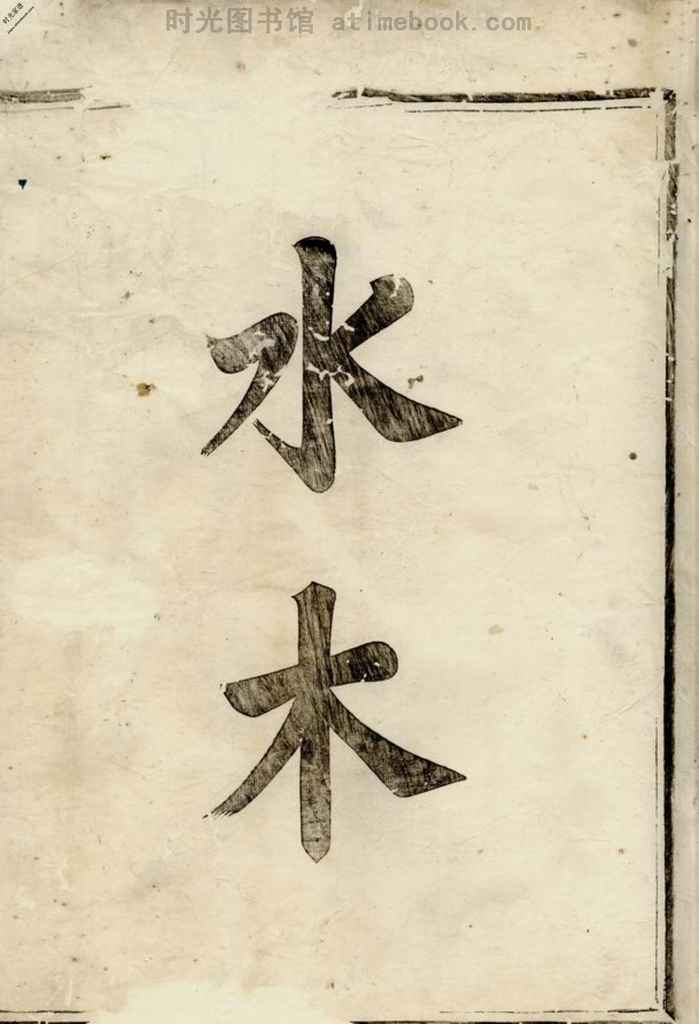 时光图书馆 atimebook.com
水
木